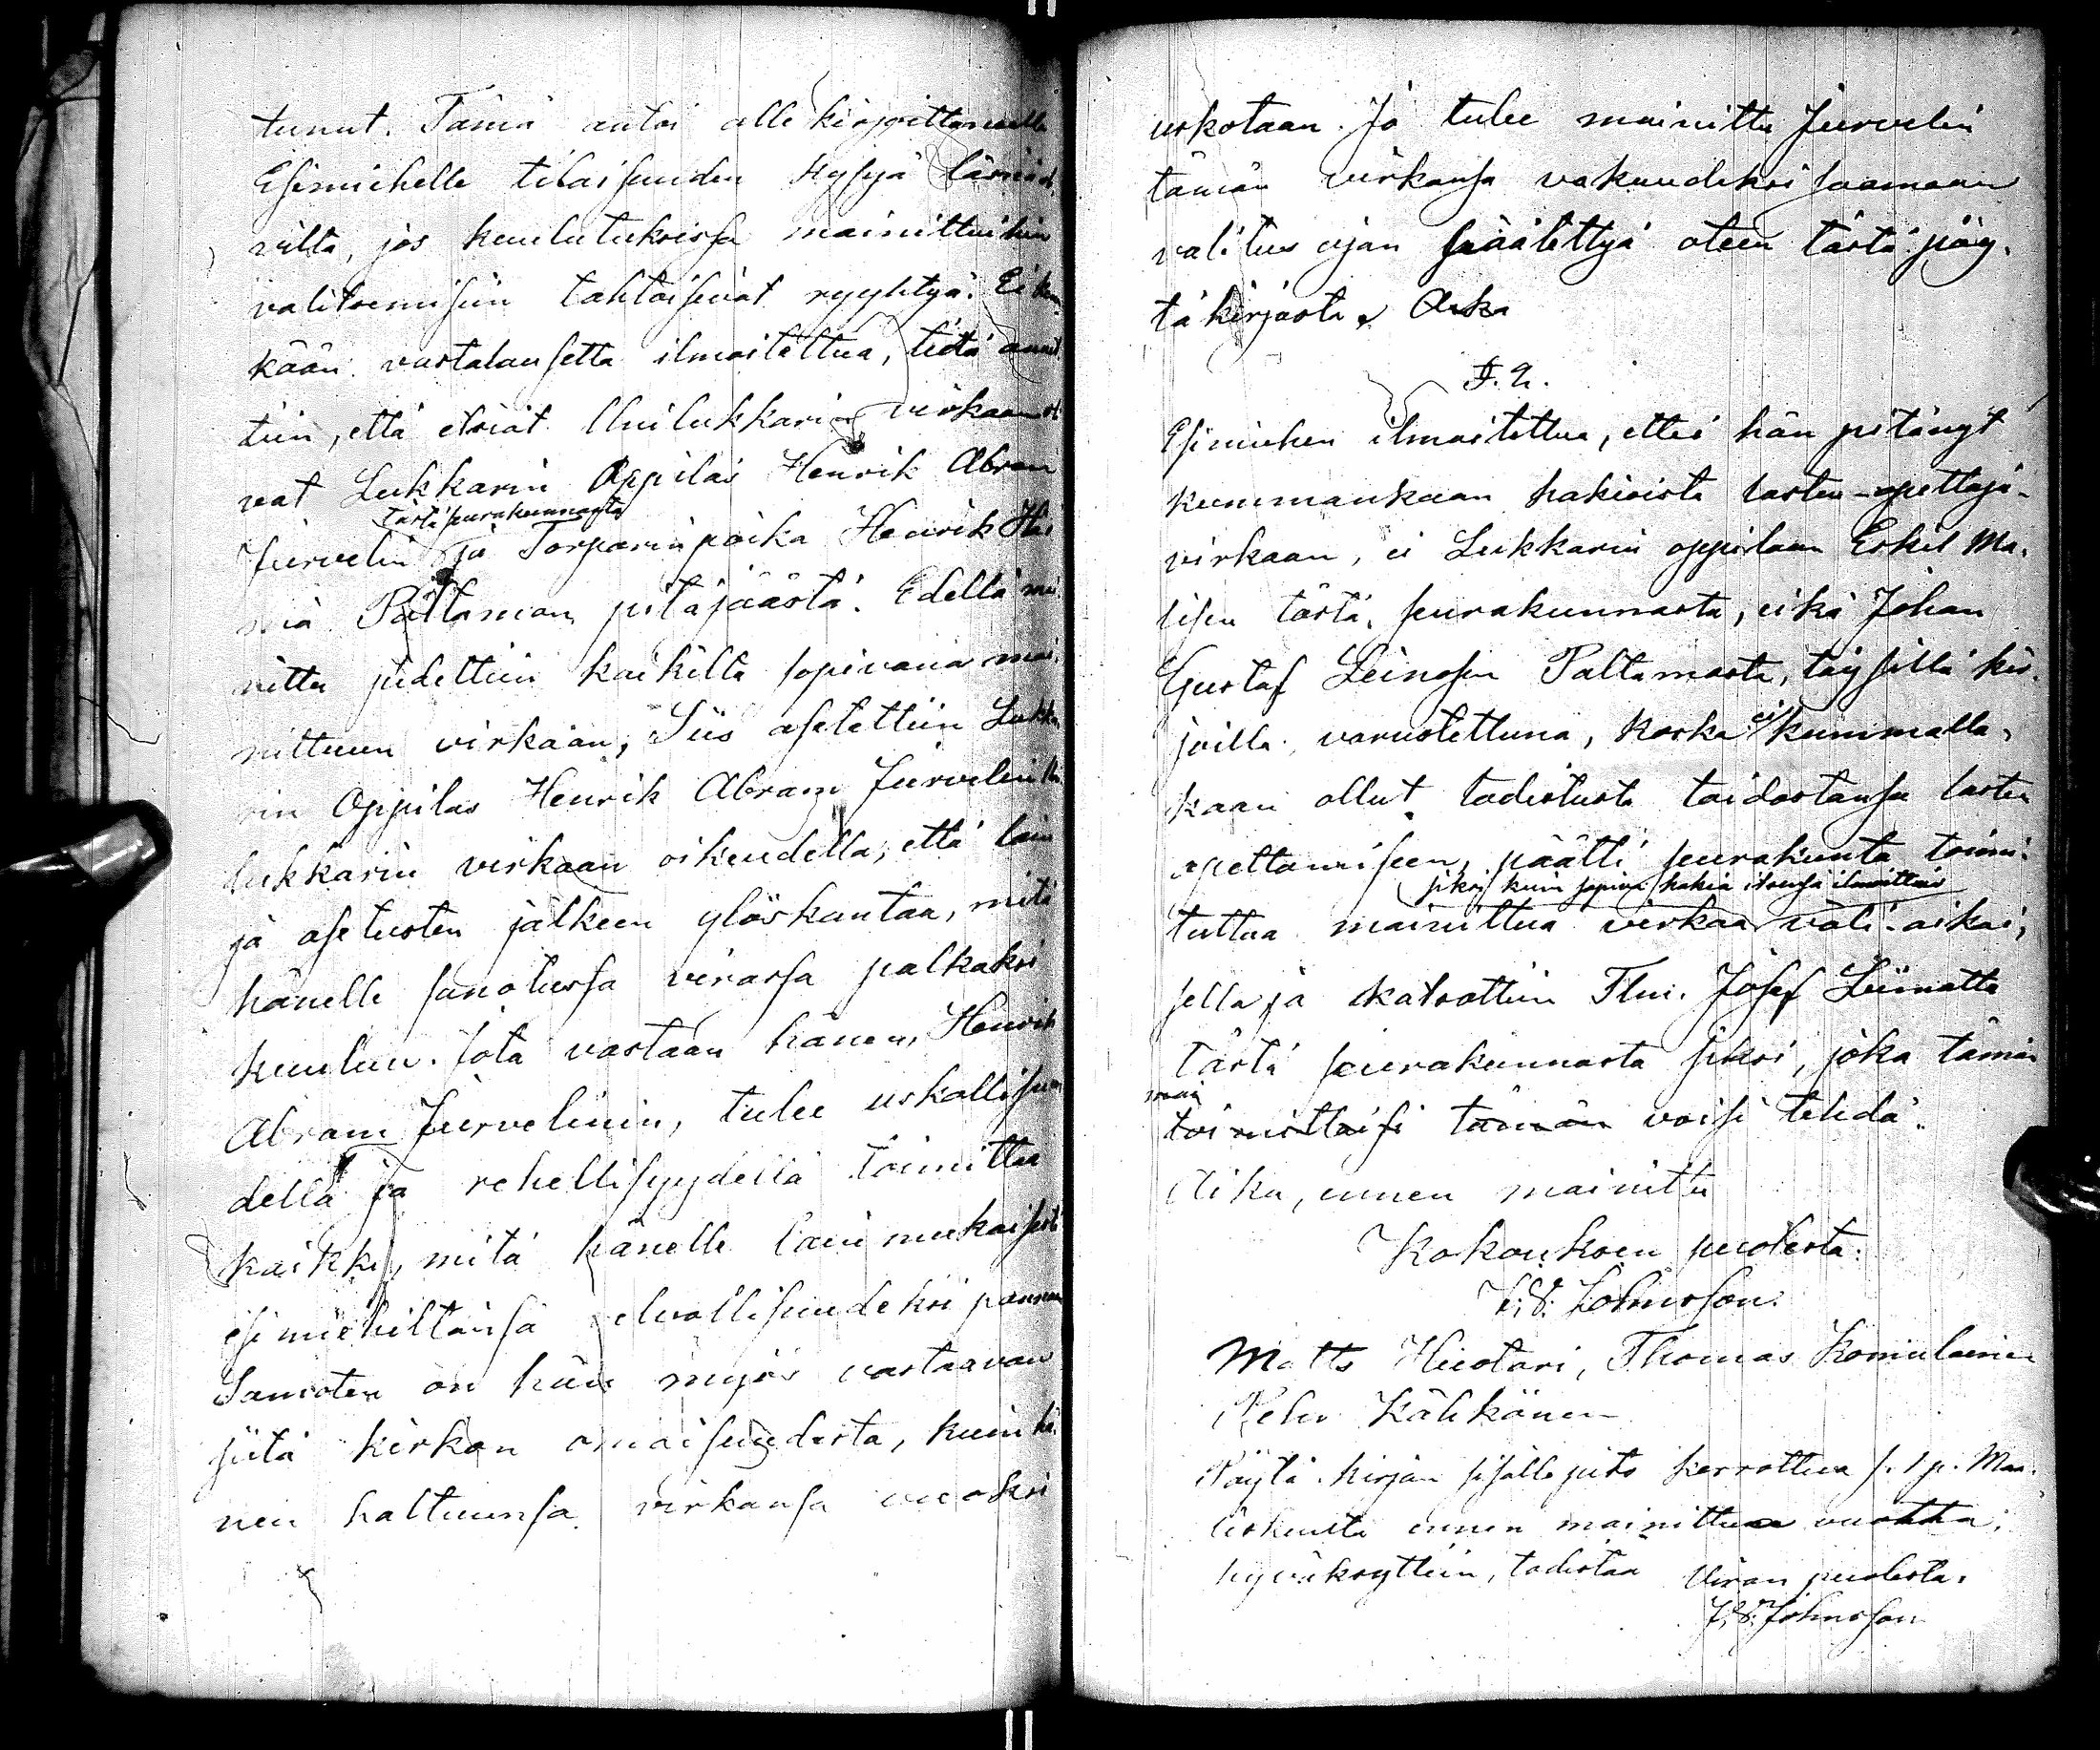 tunut. Tämä antoi allekirjoittaneelle
Esimiehelle tilaisuuden kysyä läsnäol
villa, jos kuulutuksissa mainittuihin
valitsemisiin tahtoisivat ryyhtyä. Ei ken
kään vastalausetta ilmoitettua, tietä annet
tiin, että etsiät Unilukkarin virkaan
vat Lukkarin Oppilas Henrik Abram
tästä seurakunnasta
Jurvelin ja Torparinpoika Henrik
Paltamon pitäjäästä. Edellä mai
nittu pidettiin kaikilta sopivana mai
nittuun virkaan, Siis asetettiin Lukka
rin Oppilas Henrik Abram Jurvelin
lukkarin virkaan oikeudella, että lain
ja asetusten jälkeen ylöskantaa, mitä
hänelle sanotussa virassa palkaksi
kuuluu. Jota vastaan hänen, Henrik
Abram Jurvelinin, tulee uskollisuu
della ja rehellisyydellä toimittaa
kaikki, mitä hänelle lain mukaisesti
esimiehiltänsä velvollisuudeksi pannaan
Samoten on hän myös vastaavan
siitä kirkon omaisuudesta, kuin hä
nen haltuunsa virkansa vuoksi
uskotaan. Ja tulee mainittu Jurvelin
tämän virkansa vakuudeksi saamaan
valitus ajan päätettyä oteen tästä pöy,
täkirjasta. Aika
§. 2.
Esimiehen ilmoitettua, ettei hän pitänyt
kummankaan hakioista lasten-opettaja-
virkaan, ei Lukkarin oppilaan Eskil Ma,
lisen tästä seurakunnasta, eikä Johan
Gustaf Leinosen Paltamosta, täysillä kir.
joilla varustettuna, koska ei kummalla,
kaan ollut todistusta taidostansa lasten
opettamiseen, päätti seurakunta toimi-
siksi kuin sopiva hakia itsensä ilmoittais
tuttaa mainittua virkaa väli-aikai,
sella ja katsottiin Tlni. Josef Liimatta
tästä seurakunnasta siksi, joka tämän
toimittaisi tämän voisi tehdä.
Aika, ennen mainittu
Kokouksen puolesta:
J. V. Johnsson.
Matts Huotari, Thomas Komulainen
Pehr Kähkönen
Pöytä-kirjan sisällepito kerrottua s. 1 p. Maa.
liskuuta ennen mainittua vuotta;
hyväksyttiin, todistaa Viran puolesta.
J. V. Johnsson